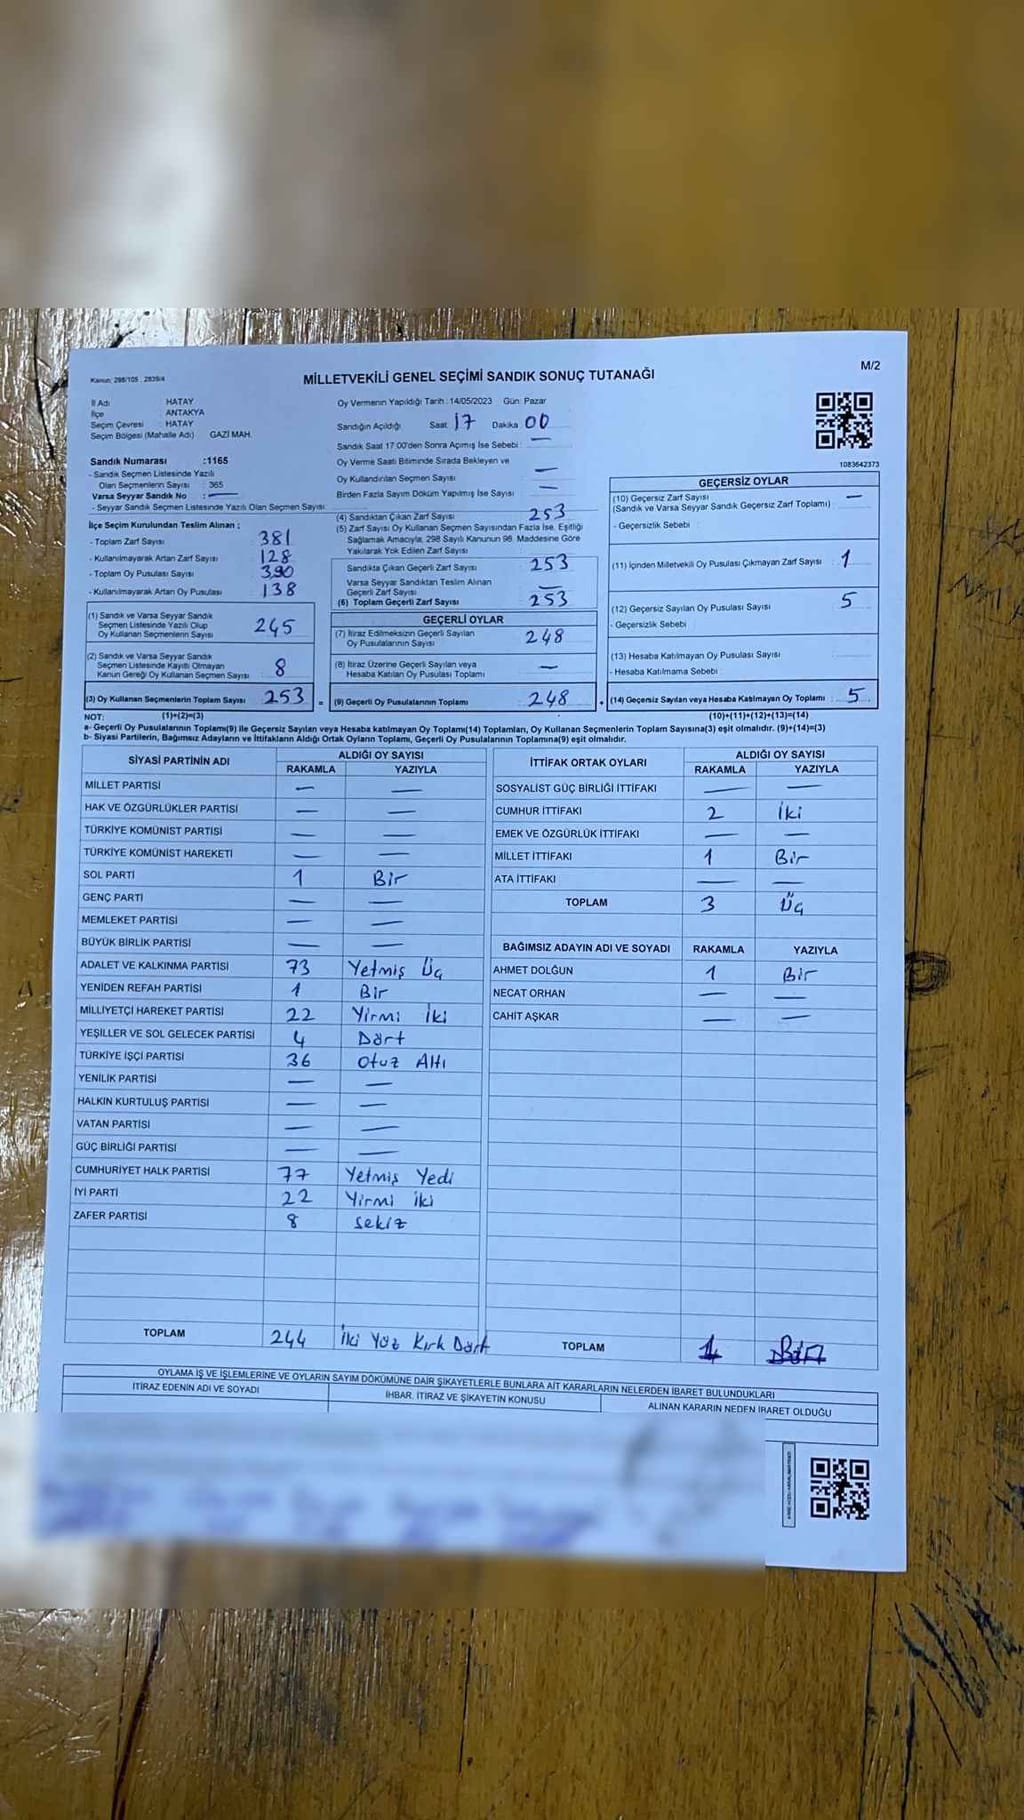 Kanun: 298/105 , 2839/4
MİLLETVEKİLİ GENEL SEÇİMİ SANDIK SONUÇ TUTANAĞI
M/2
İl Adı : HATAY
İlçe : ANTAKYA
Seçim Çevresi : HATAY
Seçim Bölgesi (Mahalle Adı) GAZİ MAH.
Sandık Numarası :1165
- Sandık Seçmen Listesinde Yazılı
Olan Seçmenlerin Sayısı : 365
Varsa Seyyar Sandık No : —
- Seyyar Sandık Seçmen Listesinde Yazılı Olan Seçmen Sayısı
İlçe Seçim Kurulundan Teslim Alınan ;
- Toplam Zarf Sayısı 381
- Kullanılmayarak Artan Zarf Sayısı 128
- Toplam Oy Pusulası Sayısı 390
- Kullanılmayarak Artan Oy Pusulası 138
(1) Sandık ve Varsa Seyyar Sandık
Seçmen Listesinde Yazılı Olup
Oy Kullanan Seçmenlerin Sayısı 245
(2) Sandık ve Varsa Seyyar Sandık
Seçmen Listesinde Kayıtlı Olmayan
Kanun Gereği Oy Kullanan Seçmen Sayısı 8
(3) Oy Kullanan Seçmenlerin Toplam Sayısı 253 =
(1)+(2)=(3)
Oy Vermenin Yapıldığı Tarih : 14/05/2023 Gün: Pazar
Sandığın Açıldığı Saat 17 Dakika 00
Sandık Saat 17:00'den Sonra Açımış İse Sebebi : —
Oy Verme Saati Bitiminde Sırada Bekleyen ve
Oy Kullandırılan Seçmen Sayısı —
Birden Fazla Sayım Döküm Yapılmış İse Sayısı —
(4) Sandıktan Çıkan Zarf Sayısı 253
(5) Zarf Sayısı Oy Kullanan Seçmen Sayısından Fazla İse, Eşitliği
Sağlamak Amacıyla, 298 Sayılı Kanunun 98. Maddesine Göre
Yakılarak Yok Edilen Zarf Sayısı
Sandıkta Çıkan Geçerli Zarf Sayısı 253
Varsa Seyyar Sandıktan Teslim Alınan
Geçerli Zarf Sayısı —
(6) Toplam Geçerli Zarf Sayısı 253
GEÇERLİ OYLAR
(7) İtiraz Edilmeksizin Geçerli Sayılan
Oy Pusulalarının Sayısı 248
(8) İtiraz Üzerine Geçerli Sayılan veya
Hesaba Katılan Oy Pusulası Toplamı —
(9) Geçerli Oy Pusulalarının Toplamı 248 +
1083642373
GEÇERSİZ OYLAR
(10) Geçersiz Zarf Sayısı —
(Sandık ve Varsa Seyyar Sandık Geçersiz Zarf Toplamı)
- Geçersizlik Sebebi :
(11) İçinden Milletvekili Oy Pusulası Çıkmayan Zarf Sayısı 1
(12) Geçersiz Sayılan Oy Pusulası Sayısı 5
- Geçersizlik Sebebi
(13) Hesaba Katılmayan Oy Pusulası Sayısı
- Hesaba Katılmama Sebebi
(14) Geçersiz Sayılan veya Hesaba Katılmayan Oy Toplamı : 5
(10)+(11)+(12)+(13)=(14)
NOT:
a- Geçerli Oy Pusulalarının Toplamı(9) ile Geçersiz Sayılan veya Hesaba katılmayan Oy Toplam(14) Toplamları, Oy Kullanan Seçmenlerin Toplam Sayısına(3) eşit olmalıdır. (9)+(14)=(3)
b- Siyasi Partilerin, Bağımsız Adayların ve İttifakların Aldığı Ortak Oyların Toplamı, Geçerli Oy Pusulalarının Toplamına(9) eşit olmalıdır.
SİYASİ PARTİNİN ADI ALDIĞI OY SAYISI
RAKAMLA YAZIYLA
MİLLET PARTİSİ — —
HAK VE ÖZGÜRLÜKLER PARTİSİ — —
TÜRKİYE KOMÜNİST PARTİSİ — —
TÜRKİYE KOMÜNİST HAREKETİ — —
SOL PARTİ 1 Bir
GENÇ PARTİ — —
MEMLEKET PARTİSİ — —
BÜYÜK BİRLİK PARTİSİ — —
ADALET VE KALKINMA PARTİSİ 73 Yetmiş Üç
YENİDEN REFAH PARTİSİ 1 Bir
MİLLİYETÇİ HAREKET PARTİSİ 22 Yirmi İki
YEŞİLLER VE SOL GELECEK PARTİSİ 4 Dört
TÜRKİYE İŞÇİ PARTİSİ 36 Otuz Altı
YENİLİK PARTİSİ — —
HALKIN KURTULUŞ PARTİSİ — —
VATAN PARTİSİ — —
GÜÇ BİRLİĞİ PARTİSİ — —
CUMHURİYET HALK PARTİSİ 77 Yetmiş Yedi
İYİ PARTİ 22 Yirmi iki
ZAFER PARTİSİ 8 sekiz
TOPLAM 244 İki Yüz Kırk Dört
İTTİFAK ORTAK OYLARI ALDIĞI OY SAYISI
RAKAMLA YAZIYLA
SOSYALİST GÜÇ BİRLİĞİ İTTİFAKI — —
CUMHUR İTTİFAKI 2 İki
EMEK VE ÖZGÜRLÜK İTTİFAKI — —
MİLLET İTTİFAKI 1 Bir
ATA İTTİFAKI — —
TOPLAM 3 Üç
BAĞIMSIZ ADAYIN ADI VE SOYADI RAKAMLA YAZIYLA
AHMET DOLĞUN 1 Bir
NECAT ORHAN — —
CAHİT AŞKAR — —
TOPLAM 1
OYLAMA İŞ VE İŞLEMLERİNE VE OYLARIN SAYIM DÖKÜMÜNE DAİR ŞİKAYETLERLE BUNLARA AİT KARARLARIN NELERDEN İBARET BULUNDUKLARI
İTİRAZ EDENİN ADI VE SOYADI İHBAR, İTİRAZ VE ŞİKAYETİN KONUSU ALINAN KARARIN NEDEN İBARET OLDUĞU